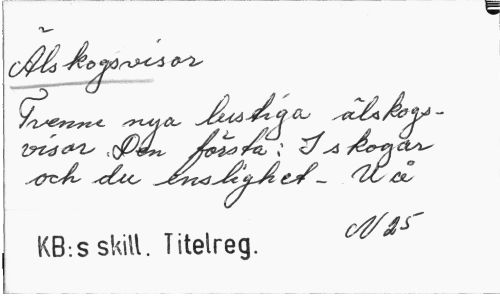 Älskogsvisor
Tvenne nya lustiga älskogs-
visor. Den första: I skogar
och du enslighet - U å
N 25
KB:s skill. Titelreg.